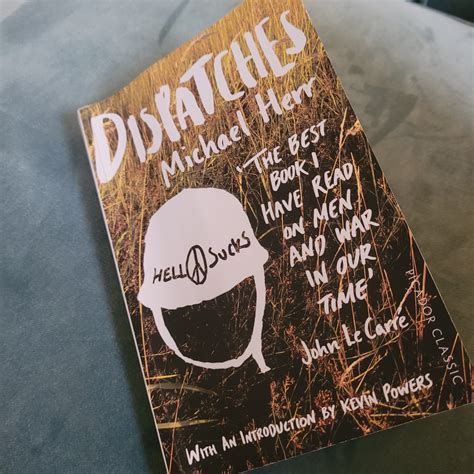 DISPATCHES
Michael Herr
'THE BEST
BOOK I
HAVE READ
ON MEN
AND WAR
IN OUR
TIME'
John Le Carré
HELL SUCKS
PICADOR CLASSIC
WITH AN INTRODUCTION BY KEVIN POWERS